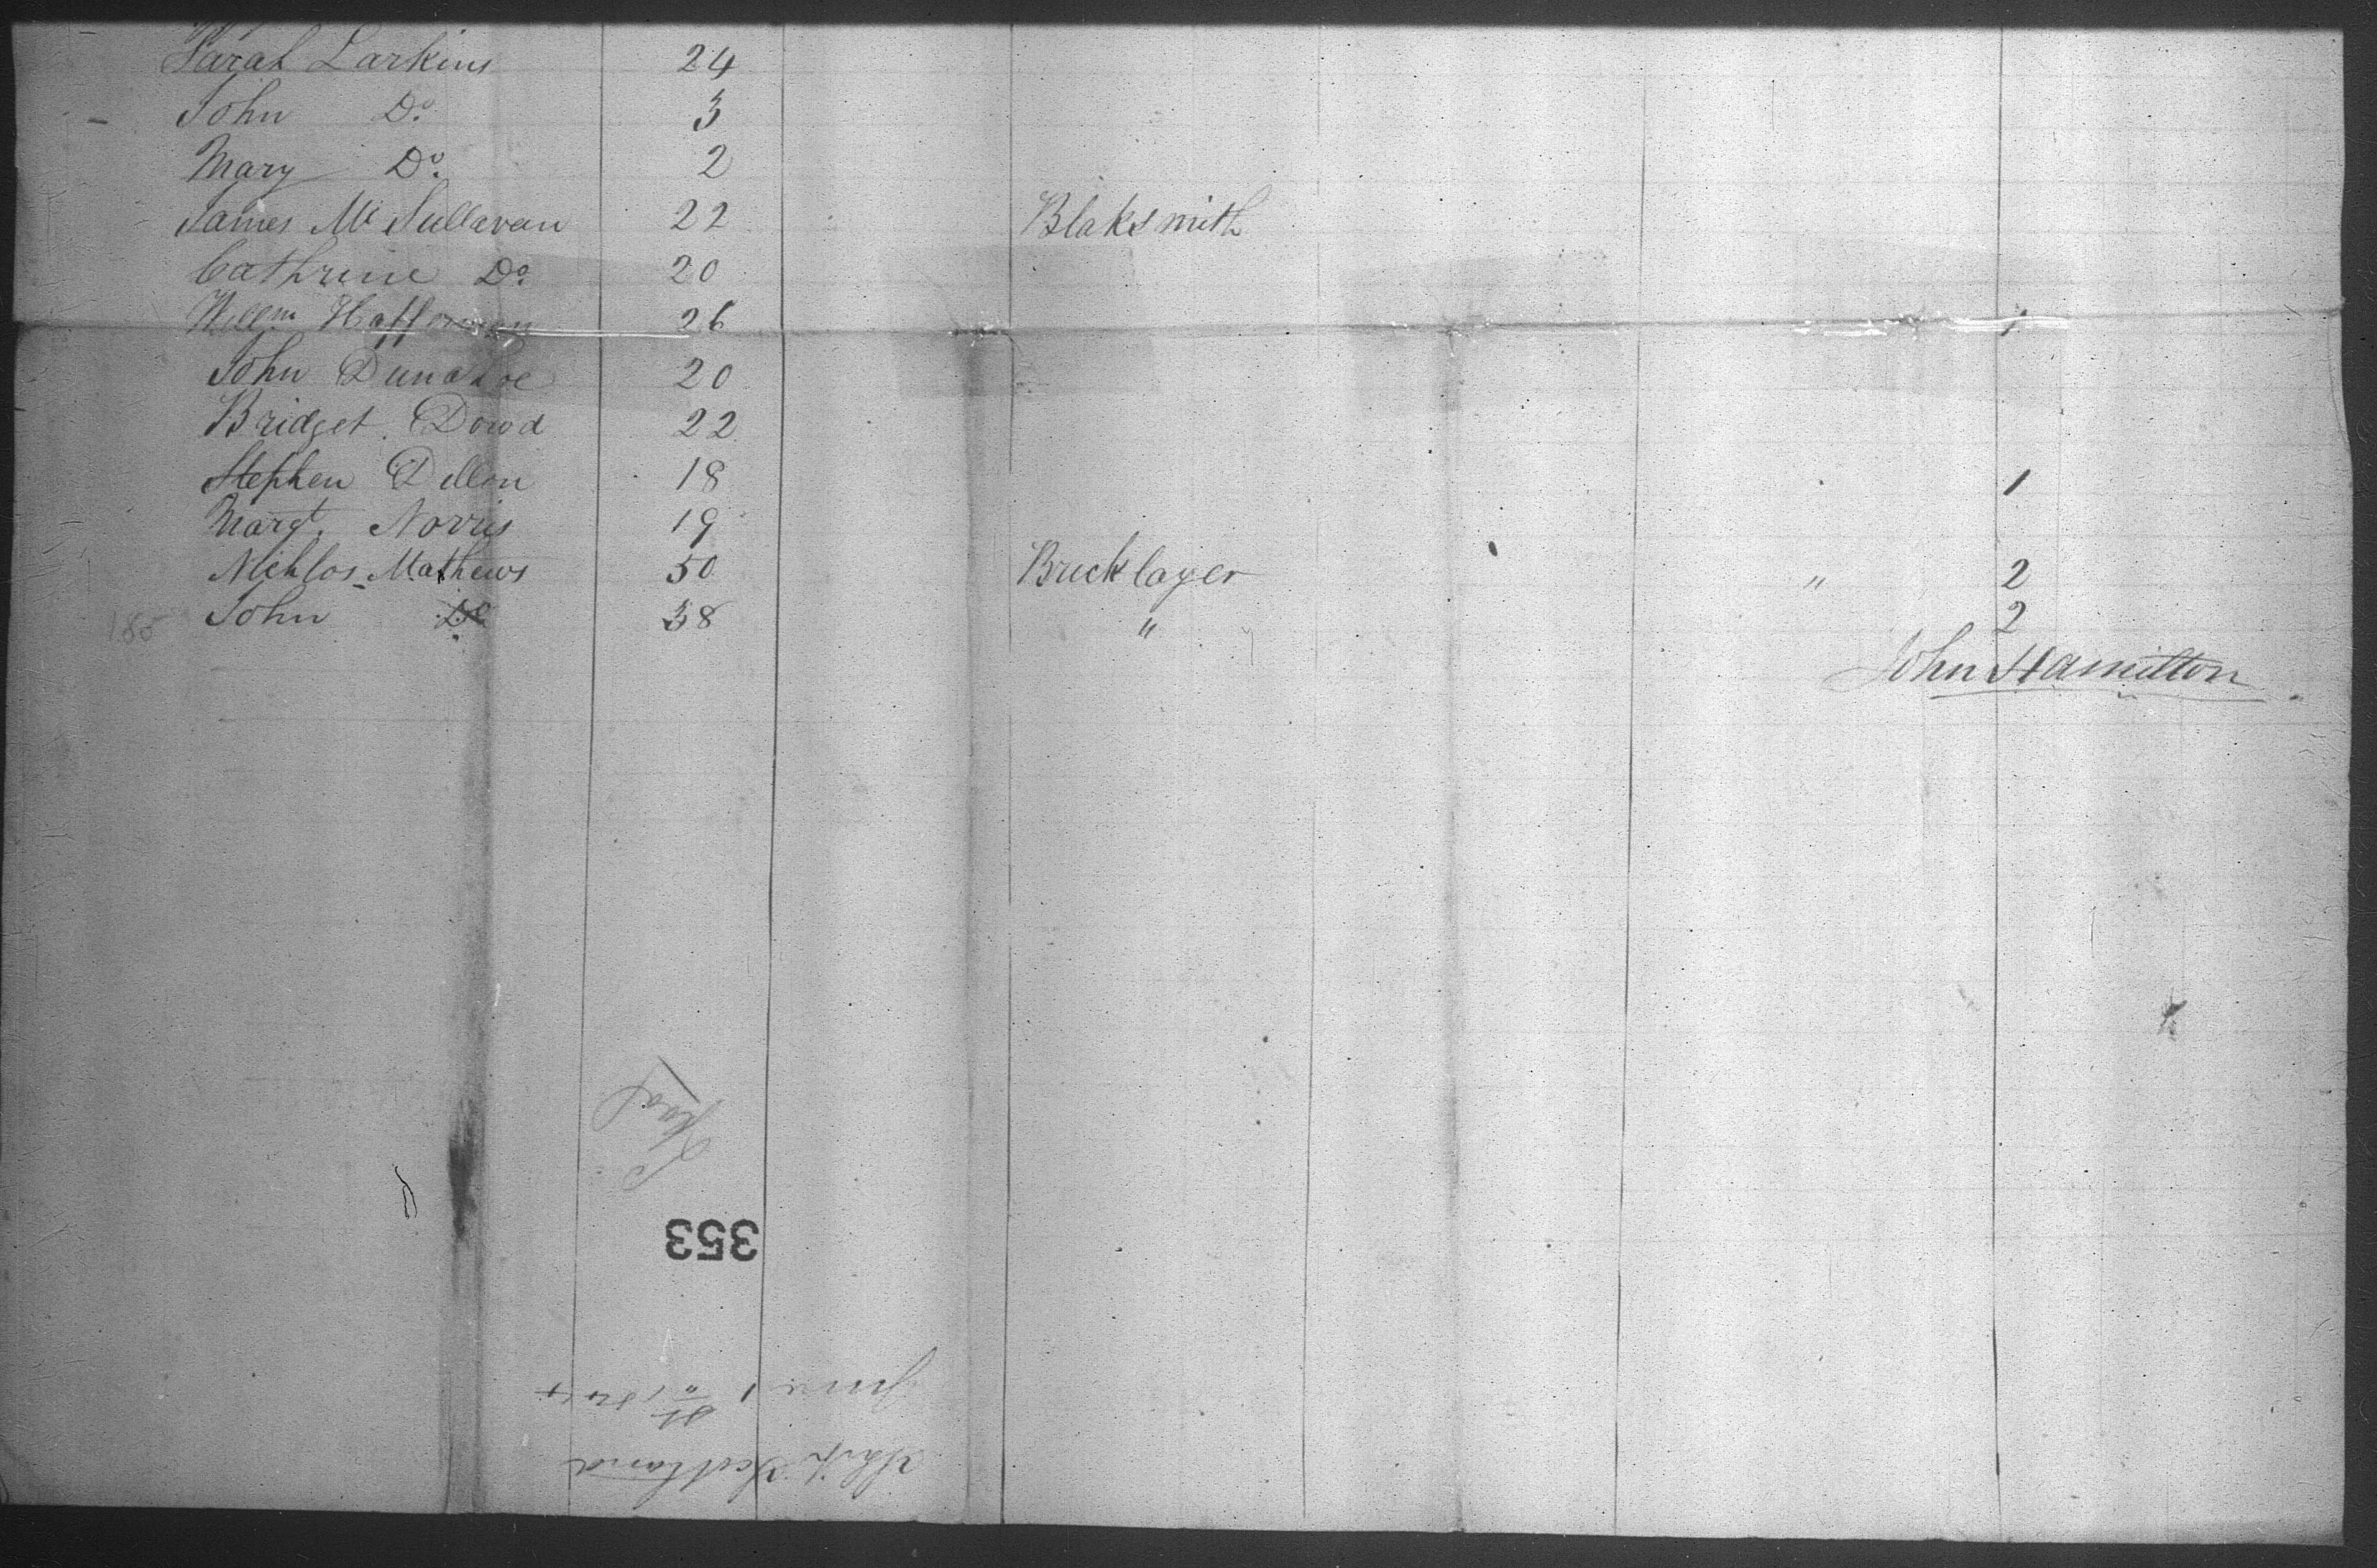 Sarah Larkins 24
John Do. 3
Mary Do. 2
James Mc Sullavan 22 Blaksmith
Cathrine Do. 20
Willm Hafferman 26 1
John Dunahoe 20
Bridget Dowd 22
Stephen Dillon 18 1
Margt. Norris 19
Nichlos Mathews 50 Bricklayer " 2
185 John Do 38 " 2
John Hamilton
353
Ship Scotland
June 1st 1844